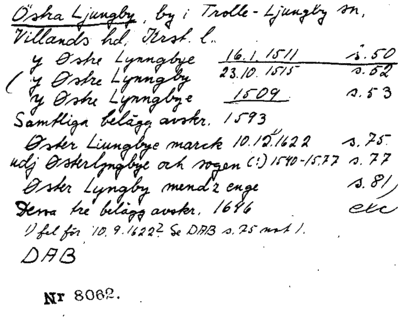 Östra Ljungby, by i Trolle-Ljungby sn,
Villands hd, Krist. l.
y Østre Lynngbye 16.1.1511 s. 50
( y Østre Lynngby 23.10.1515 s. 52
y Østre Lynngbye 1509 s. 53
Samtliga belägg avskr. 1593
Øster Liungbye marck 10.12¹⁾1622 s. 75
udj Østerlyngbye och sogen (:) 1540-1577 s. 77
Øster Lyngby mend'z enge s. 81
Dessa tre belägg avskr. 1646 etc
1) fel för 10.9.1622? Se DAB s. 75 not 1.
DAB
Nr 8062.